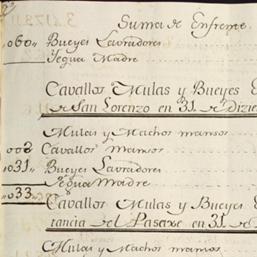 Suma de Enfrente
060 Bueyes Lavradores
Yegua Madre
Cavallos Mulas y Bueyes
de San Lorenzo en 31 de Dizie
Mulas y Machos mansos
002 Cavallos mansos
031 Bueyes Lavradores
Yegua Madre
033
Cavallos Mulas y Bueyes E
tancia del Pasaxe en 31 de
Mulas y Machos mansos